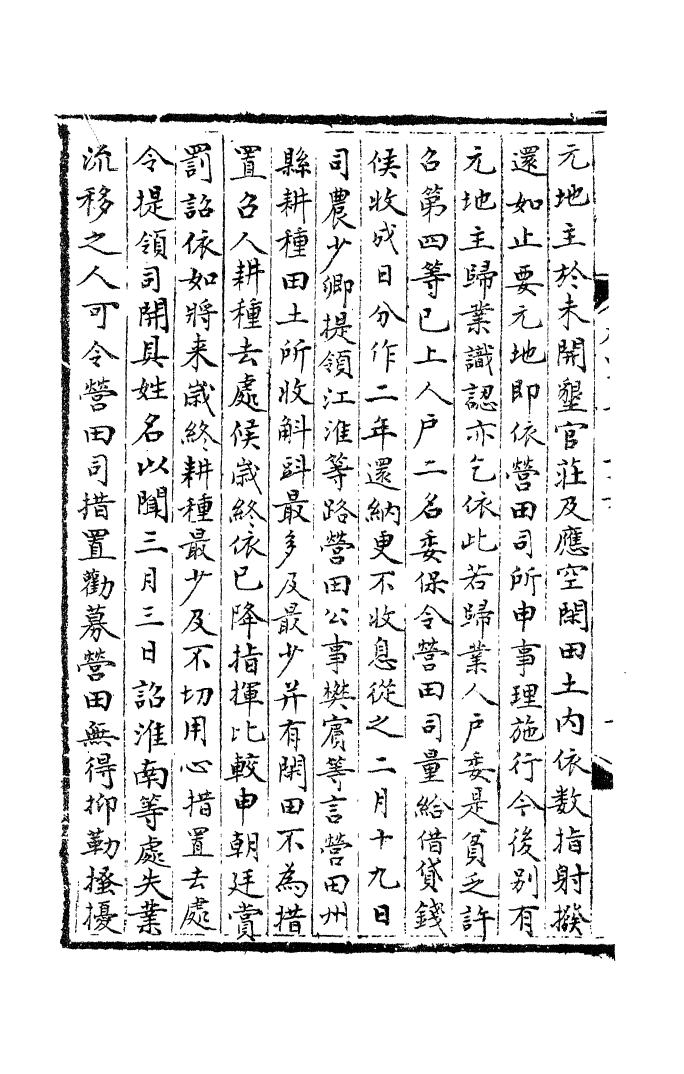 元地主於未開墾官莊及應空閑田土內依數指射撥
還如止要元地即依營田司所申事理施行今後别有
元地主歸業識認亦乞依此若歸業人戶委是貧乏許
召第四等已上人戶二名委保令營田司量給借貸錢
候收成日分作二年還納更不收息從之二月十九日
司農少卿提領江淮等路營田公事樊賔等言營田州
縣耕種田土所收斛㪷最多及最少并有閑田不為措
置召人耕種去處候嵗終依已降指揮比較申朝廷賞
罰詔依如將来嵗終耕種最少及不切用心措置去處
令提領司開具姓名以聞三月三日詔淮南等處失業
流移之人可令營田司措置勸募營田無得抑勒搔擾